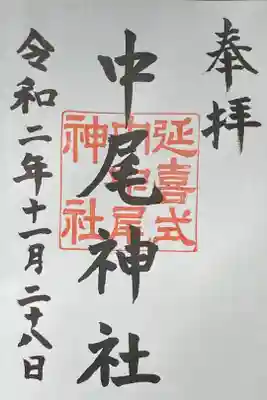 奉拝
中尾神社
延喜式
内中尾
神社
令和二年十一月二十八日